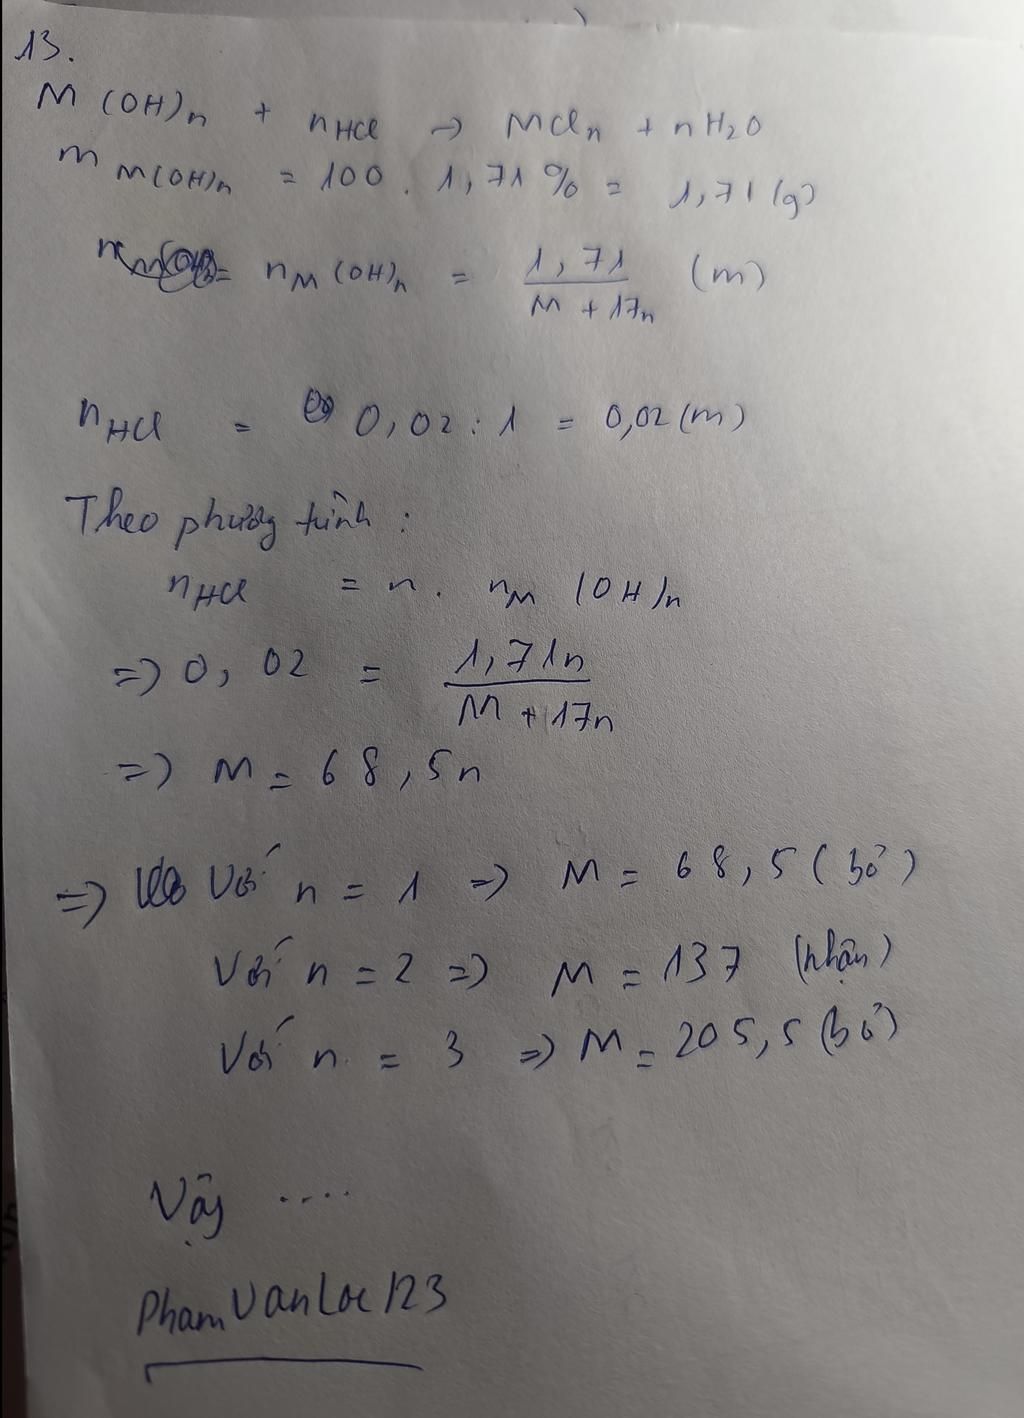 13.
M(OH)n + nHCl → MCln + nH2O
m M(OH)n = 100 . 1,71% = 1,71 (g)
= nM(OH)n = 1,71 / M + 17n (m)
nHCl = 0,02 : 1 = 0,02 (m)
Theo phương trình :
nHCl = n. nM(OH)n
=> 0,02 = 1,71n / M + 17n
=> M = 68,5n
=> Với n = 1 => M = 68,5 (bỏ)
Với n = 2 => M = 137 (nhận)
Với n = 3 => M = 205,5 (bỏ)
Vậy ....
PhamVanLoc123